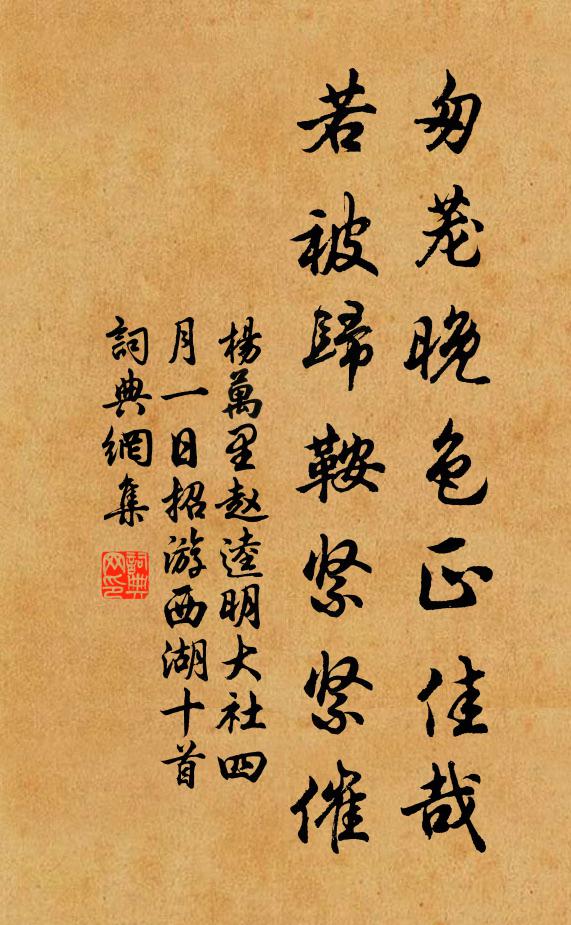 匆茫晚色正佳哉
若被歸鞍紧紧催
楊萬里赵逵明大社四
月一日招游西湖十首
詞典網集
詞典
网印